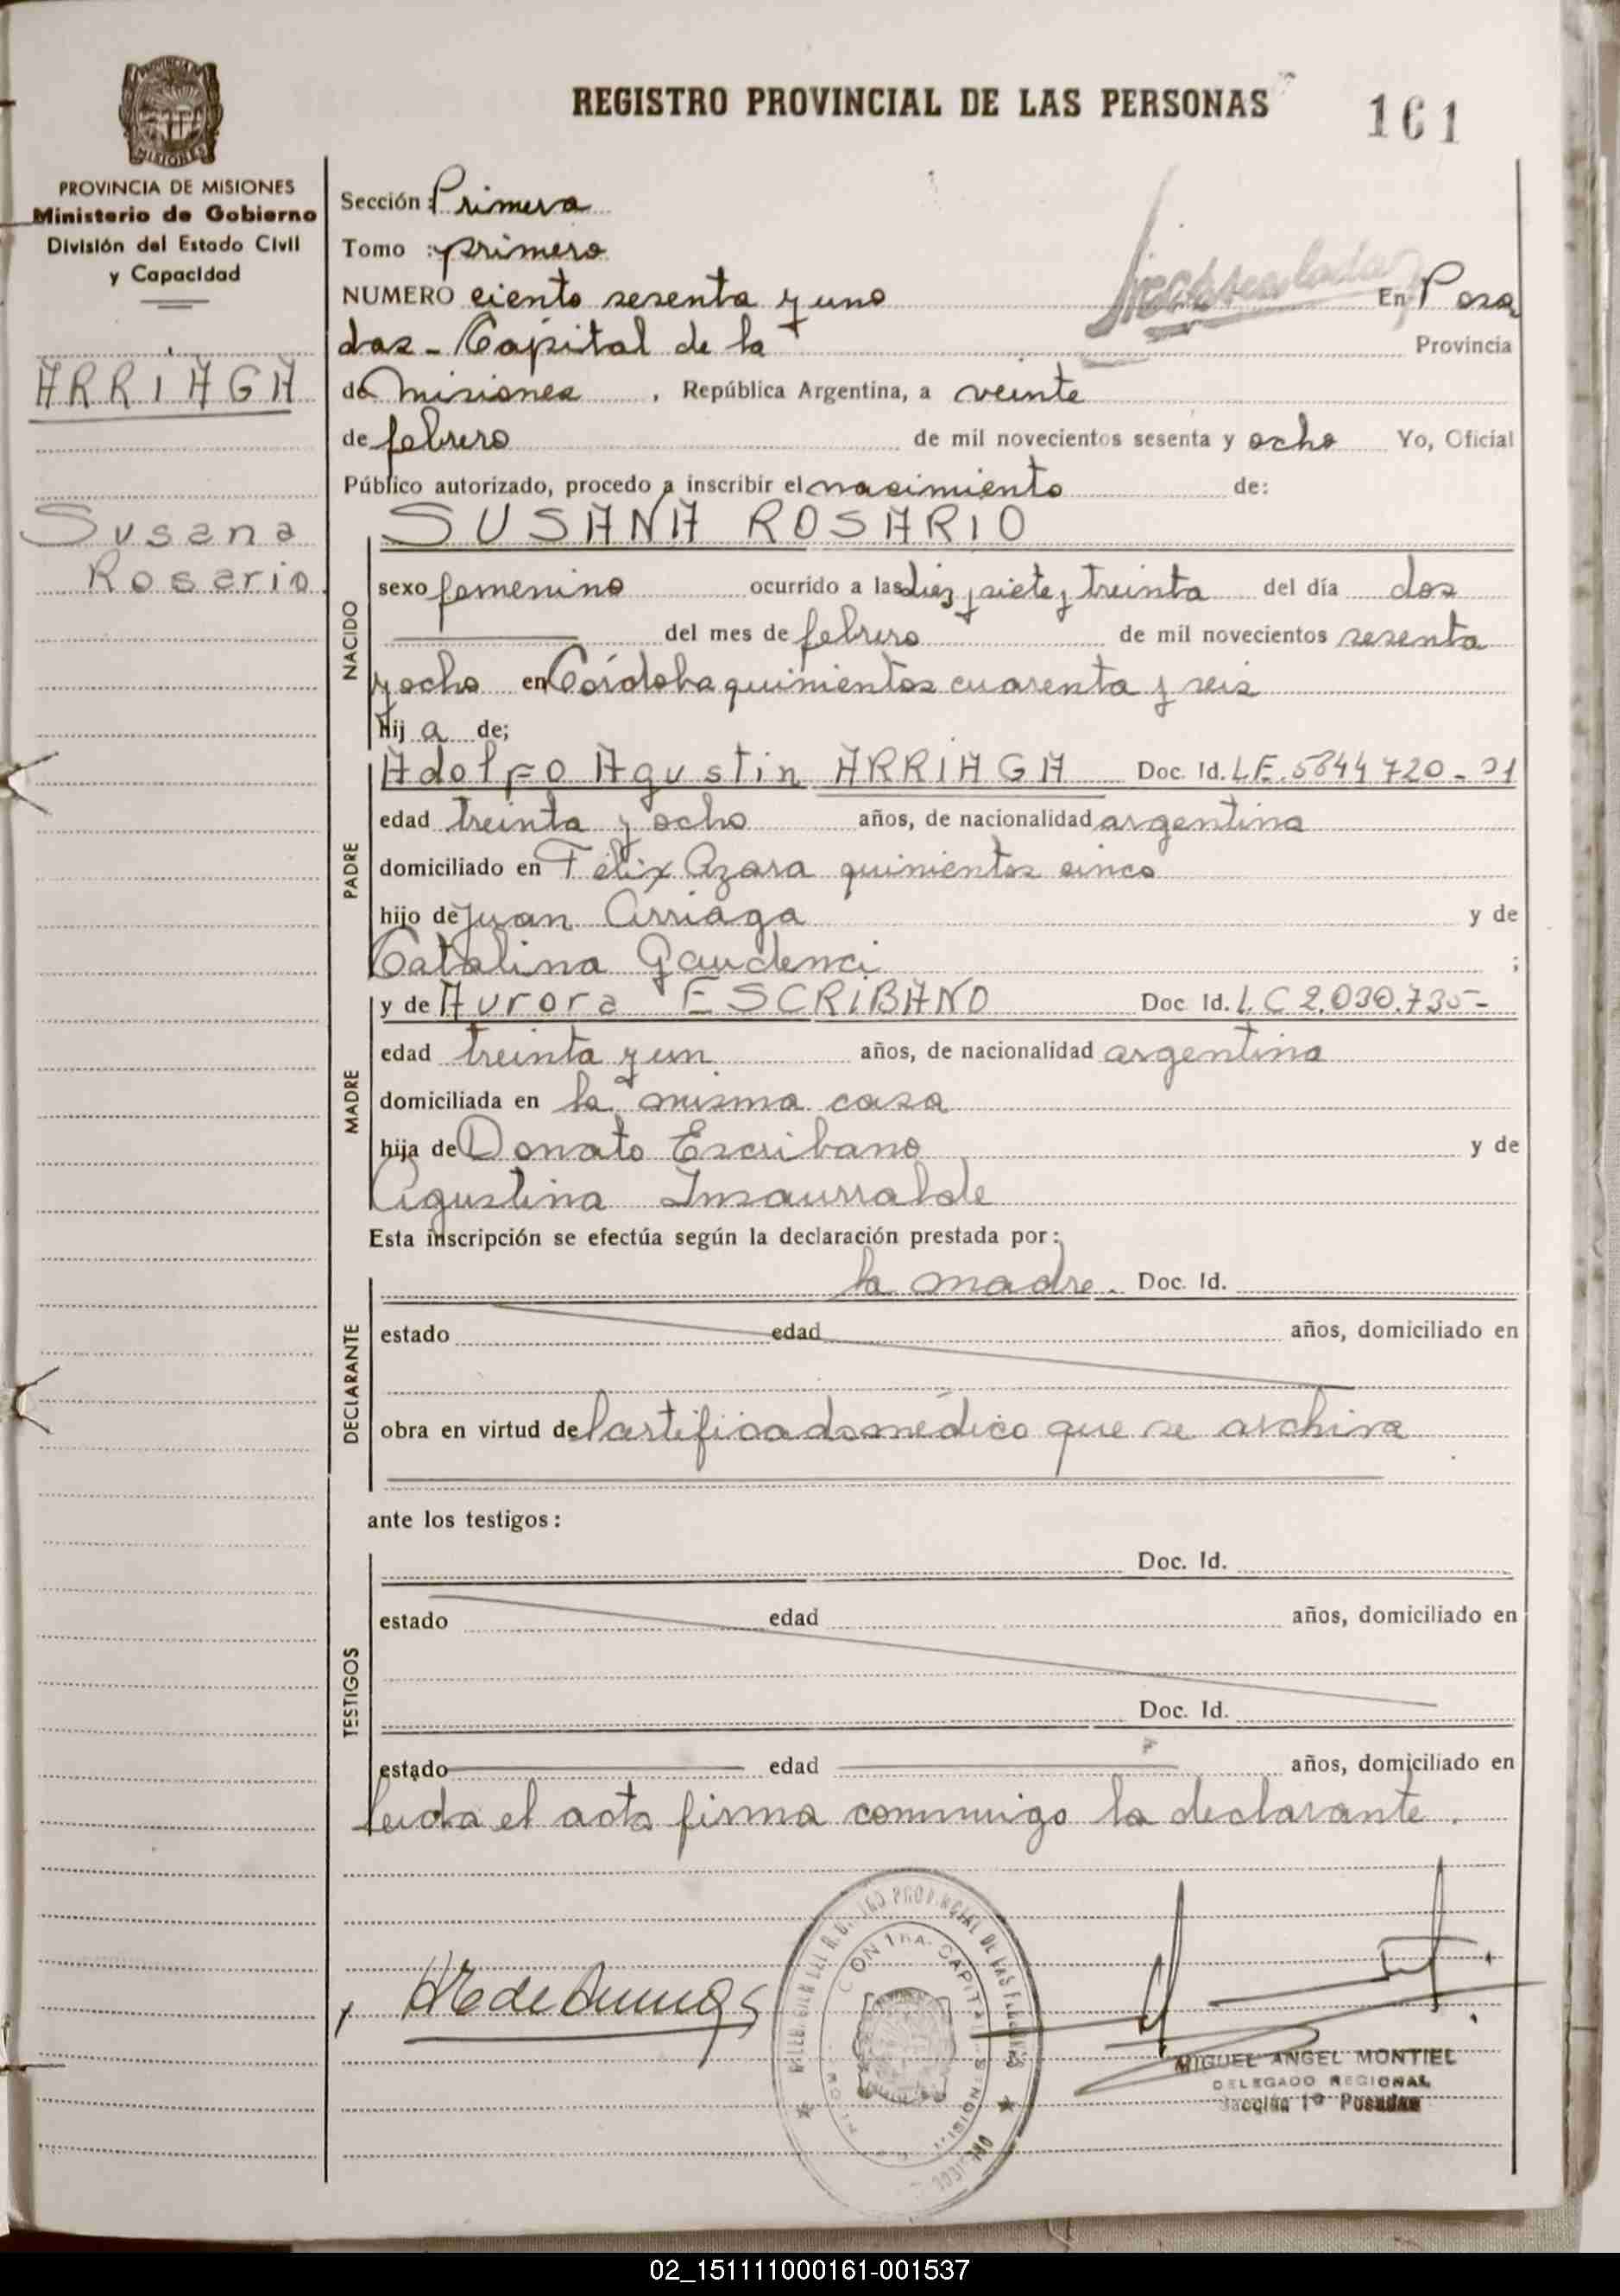 REGISTRO PROVINCIAL DE LAS PERSONAS
161
MISIONES
PROVINCIA DE MISIONES
Ministerio de Gobierno
División del Estado Civil
y Capacidad
ARRIAGA
Susana
Rosario
Sección: Primera
Tomo : primero
NUMERO ciento sesenta y uno En Posa
das - Capital de la Provincia
de misiones , República Argentina, a veinte
de febrero de mil novecientos sesenta y ocho Yo, Oficial
Público autorizado, procedo a inscribir el nacimiento de:
NACIDO
SUSANA ROSARIO
sexo femenino ocurrido a las diez y siete y treinta del día dos
del mes de febrero de mil novecientos sesenta
y ocho en Córdoba quinientos cuarenta y seis
hij a de;
PADRE
Adolfo Agustin ARRIAGA Doc. Id. LE. 5844720-01
edad treinta y ocho años, de nacionalidad argentina
domiciliado en Félix Azara quinientos cinco
hijo de Juan Arriaga y de
Catalina Gaudenci ;
MADRE
y de Aurora ESCRIBANO Doc. Id. L C 2.030.735-
edad treinta y un años, de nacionalidad argentina
domiciliada en la misma casa
hija de Donato Escribano y de
Agustina Insaurralde
Esta inscripción se efectúa según la declaración prestada por:
DECLARANTE
la madre. Doc. Id.
estado edad años, domiciliado en
obra en virtud del certificado médico que se archiva
ante los testigos:
TESTIGOS
Doc. Id.
estado edad años, domiciliado en
Doc. Id.
estado edad años, domiciliado en
leida el acta firma conmigo la declarante.
MIGUEL ANGEL MONTIEL
DELEGADO REGIONAL
Sección 1º Posadas
02_151111000161-001537